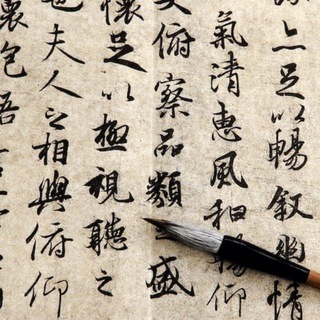 亦足以暢叙幽情
氣清惠風和暢仰
大俯察品類之盛
懷足以極視聽之
也夫人之相與俯仰
懷抱悟